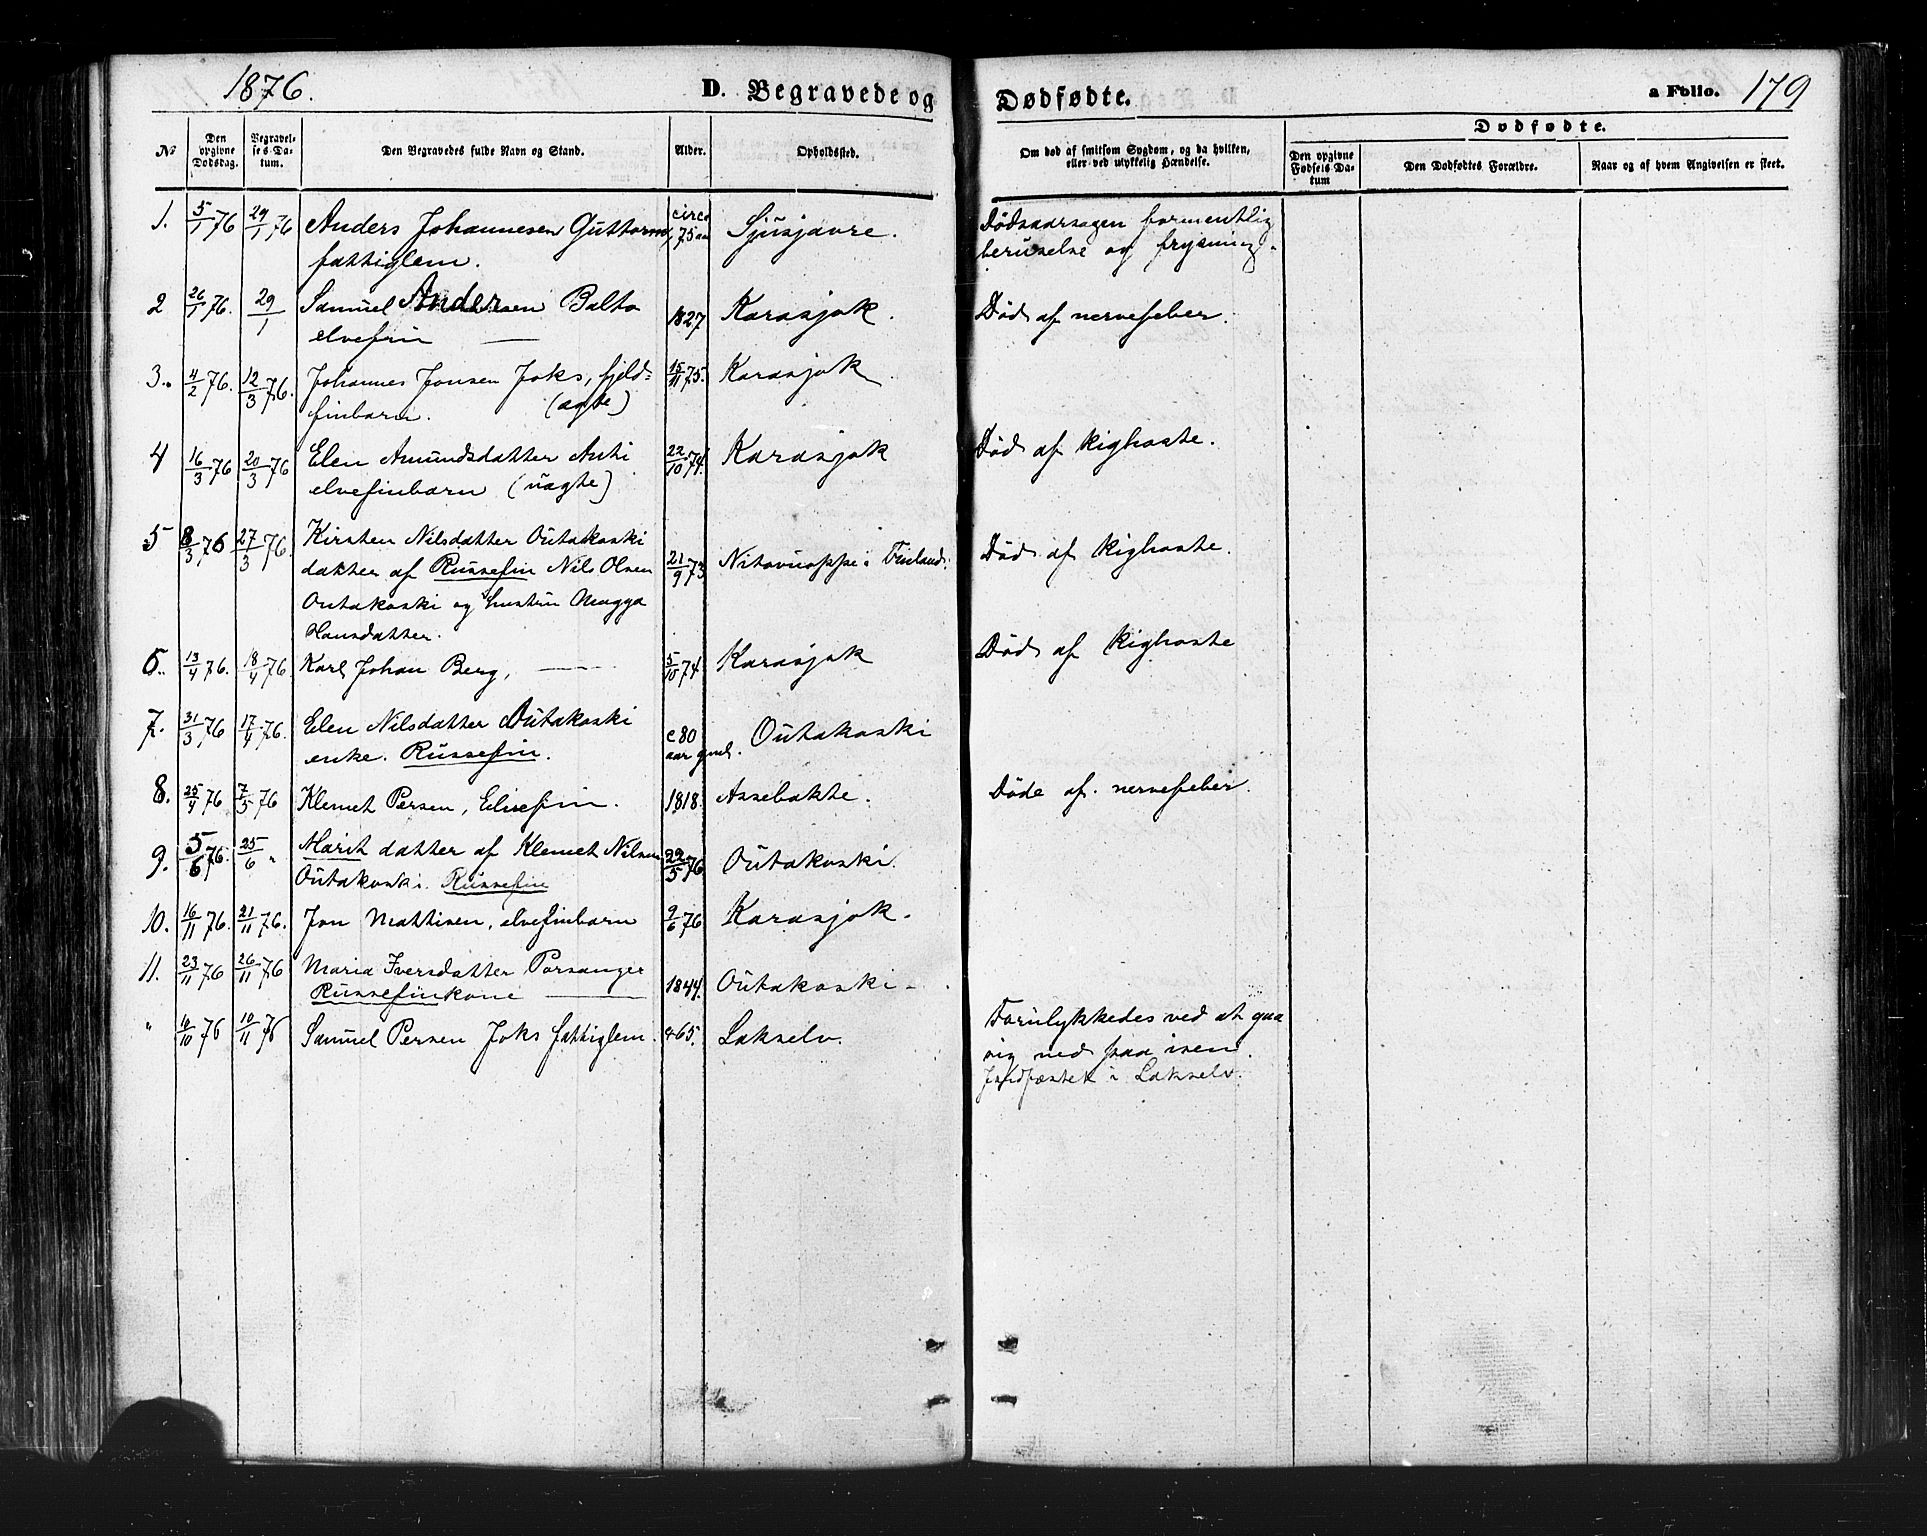 1876.
D. Begravede og Dødfødte.
a Folio. 179
No
Den opgivne Dødsdag.
Begravelses-Datum.
Den Begravedes fulde Navn og Stand.
Alder.
Opholdssted.
Om død af smitsom Sygdom, og da hvilken, eller ved ulykkelig Hændelse.
Dødfødte.
Den opgivne Fødsels-Datum
Den Dødfødtes Forældre.
Naar og af hvem Angivelsen er skeet.
1. 5/1 76 29/1 76 Anders Johannesen Guttorm, circa 75 aar Sjusjavre. Dødsaarsagen formentlig
fattiglem. beruselse og frysning.
2 26/1 76. 29/1 Samuel Andersen Balto 1827 Karasjok. Død af nervefeber.
elvefin —
3. 4/2 76. 12/3 76. Johannes Jonsen Joks, fjeld= 15/11 75. Karasjok
finbarn. (ægte)
4 16/3 76 20/3 76 Elen Amundsdatter Anti 22/10 74. Karasjok Død af kighoste.
elvefinbarn (uægte)
5 8/3 76 27/3 76. Kirsten Nilsdatter Outakoski
datter af Russefin Nils Olsen 21/9 73 Nitovuoppe i Finland. Død af kighoste.
Outakoski og hustru Magga
Hansdatter.
6. 13/4 76. 18/4 76 Karl Johan Berg, — 5/10 74 Karasjok Død af kighoste
7. 31/3 76 17/4 76. Elen Nilsdatter Outakoski c 80 Outakoski
enke. Russefin. aar gml.
8. 25/4 76 7/5 76 Klemet Persen, Elvefin. 1818. Assebakte. Døde af nervefeber.
9. 5/6 76. 25/6 " Marit datter af Klemet Nilsen 22/5 76 Outakoski.
Outakoski. Russefin
10. 16/11 76. 21/11 76. Jon Mattisen, elvefinbarn 9/6 76 Karasjok.
11. 23/11 76 26/11 76 Maria Iversdatter Porsanger 1844. Outakoski —
Russefinkone —
" 10/10 76 10/11 76 Samuel Persen Joks fattiglem. 65. Lakselv. Forulykkedes ved at gaa
sig ned paa isen.
Jordfæstet i Lakselv.